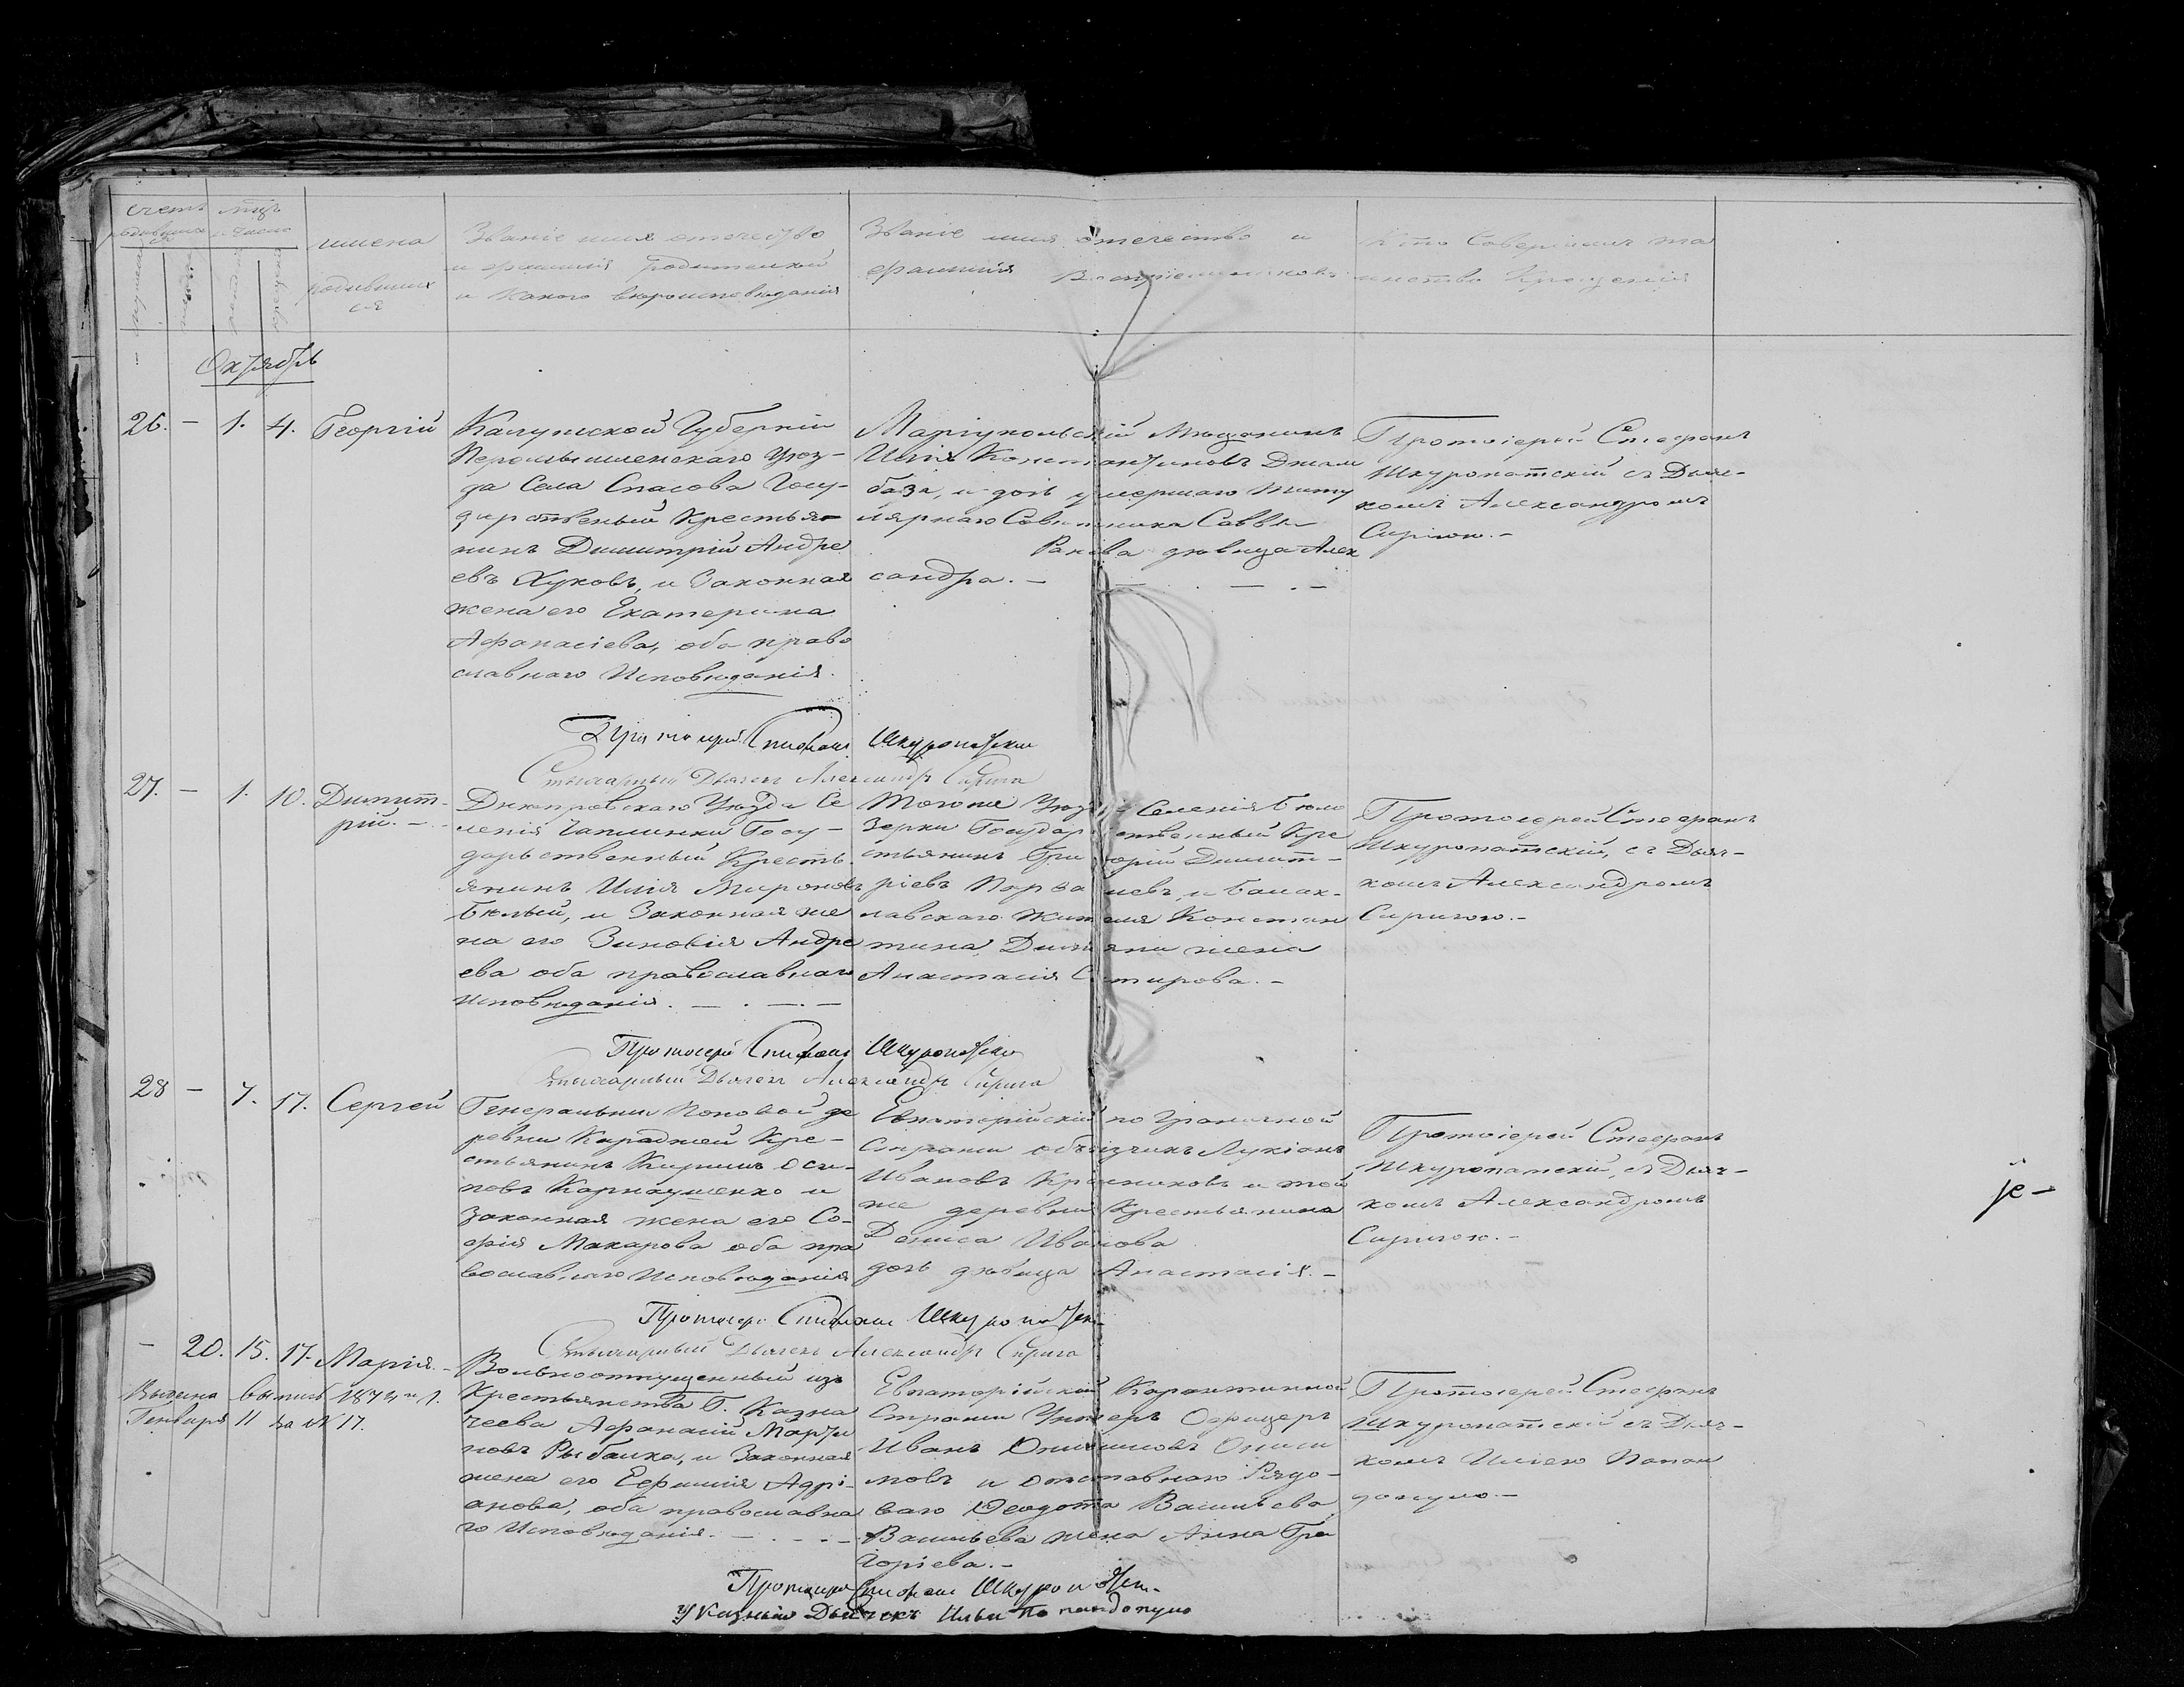 счетъ
родившихся
мужеска
женска
мѣсяцъ
и число
рожденія
крещенія
имена
родивших
ся
Званіе имя отечество
и фамилія родителей
и какого вѣроисповѣданія
Званіе имя отечество и
фамилія Воспріемниковъ
Кто Совершалъ та
инство Крещенія
Октябрь
26. — 1. 4. Георгій
Калужской Губерніи
Перемышленскаго Уѣз-
да Села Спасова Госу-
дарственый Крестья-
нинъ Димитрій Андре
евъ Жуковъ, и Законная
жена его Екатерина
Афанасіева, оба право
славнаго Исповѣданія.
Маріупольскій Мѣщанинъ
Илія Константиновъ Джам
база, и дочь умершаго Титу
лярнаго Совѣтника Саввы
Ракова дѣвица Алек
сандра. —
Протоіерей Стефанъ
Шкуропатскій съ Дьяч-
комъ Александромъ
Сиригою. —
Протоіерей Стефанъ Шкуропатскій
Стихарный Дьячекъ Александръ Сирига
27. — 1. 10. Димит-
рій. —
Днѣпровскаго Уѣзда Се
ленія Чаплинки Госу-
дарьственный Кресть
янинъ Илія Мироновъ
Бѣлый, и Законная же
на его Зиновія Андре
ева оба православнаго
исповѣданія. — . — . —
Того же Уѣзда Селенія Бѣло
зерки Государственный Кре
стьянинъ Григорій Димит-
ріевъ и Балак-
лавскаго жителя Констан
тина жена
Анастасія —
Протоіерей Стефанъ
Шкуропатскій, съ Дьяч-
комъ Александромъ
Сиригою. —
Протоіерей Стефанъ Шкуропатскій
Стихарный Дьячекъ Александръ Сирига
28 — 7. 17. Сергей
Генеральши Поповой де
ревни Караджей Кре-
стьянинъ Кирилъ Оси-
повъ Карнаушенко и
законная жена его Со-
фія Макарова оба пра
вославнаго Исповѣданія
Евпаторійскій пограничной
Стражи объѣзчикъ Лукіанъ
Ивановъ и той
же деревни Крестьянина
Дениса Иванова
дочь дѣвица Анастасія. —
Протоіерей Стефанъ
Шкуропатскій, съ Дьяч-
комъ Александромъ
Сиригою. —
je —
Протоіерей Стефанъ Шкуропатскій
Стихарный Дьячекъ Александръ Сирига
— 20. 15. 17. Марія. —
Выдана выпись 187 г.
Генваря 11 за № 17.
Вольноотпущенный изъ
Крестьянства Г. Казна
чеева Афанасій Марти
новъ Рыбалка, и Законная
жена его Ефимія Адрі-
анова, оба православна
го Исповѣданія. —
Евпаторійской Карантинной
Стражи Унтеръ Офицеръ
Иванъ Онисимовъ Ониси
мовъ и отставнаго Рядо-
ваго Ѳеодота Васильева
Васильева жена Анна Гри
горіева. —
Протоіерей Стефанъ
Шкуропатскій съ Дьяч-
комъ Иліею Папан
допуло —
Протоіерей Стефанъ Шкуропатскій
Указный Дьячекъ Илья Попандопуло